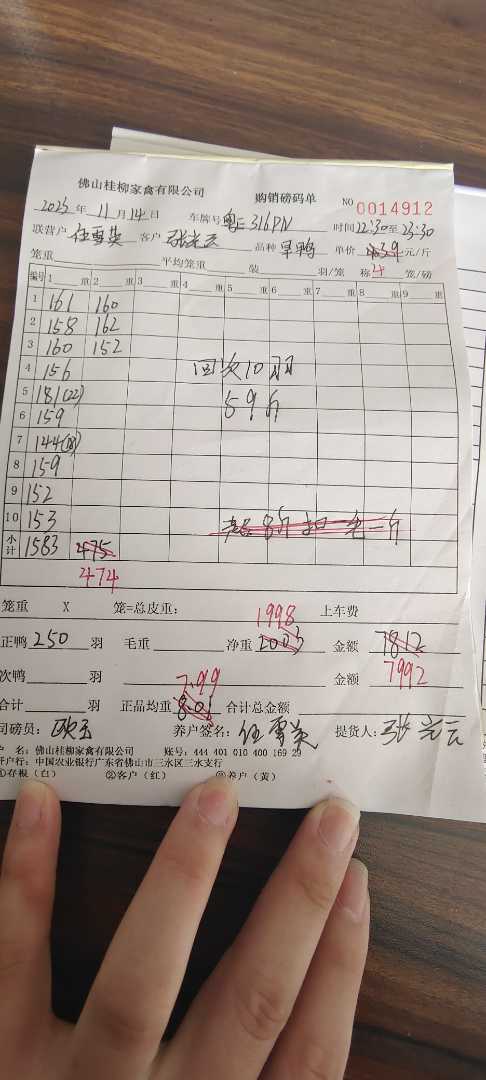 佛山桂柳家禽有限公司 购销磅码单 NO 0014912
2023年 11月14日 车牌号 粤E316PN 时间22:30至23:30
联营户 任雪英 客户 张光云 品种 旱鸭 单价 元/斤
笼重 平均笼重 装 羽/笼 称 4 笼/磅
编号 1 重 2 重 3 重 4 重 5 重 6 重 7 重 8 重 9 重
1 161 160
2 158 162
3 160 152
4 156 回次10羽
5 181(22) 59斤
6 159
7 144(18)
8 159
9 152
10 153
小计 1583 475
474
笼重 X 笼=总皮重: 1998 上车费
正鸭 250 羽 毛重 净重 2003 金额 7812
次鸭 羽 7.99 金额 7992
合计 羽 正品均重 8.01 合计总金额
司磅员: 养户签名: 任雪英 提货人: 张光云
户 名: 佛山桂柳家禽有限公司 账号: 444 401 010 400 169 29
开户行: 中国农业银行广东省佛山市三水区三水支行
①存根(白) ②客户(红) ③养户(黄)